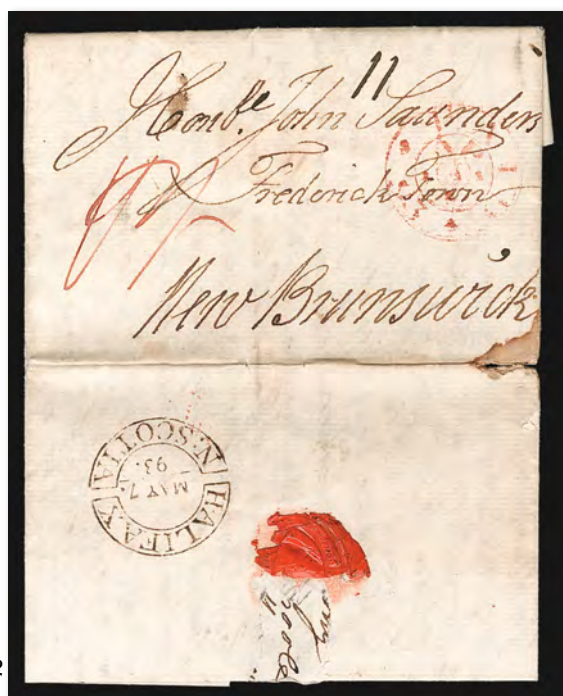 11
Honble. John Saunders
Frederick Town
New Brunswick
HALIFAX
N. SCOTIA
MAY 7
93.